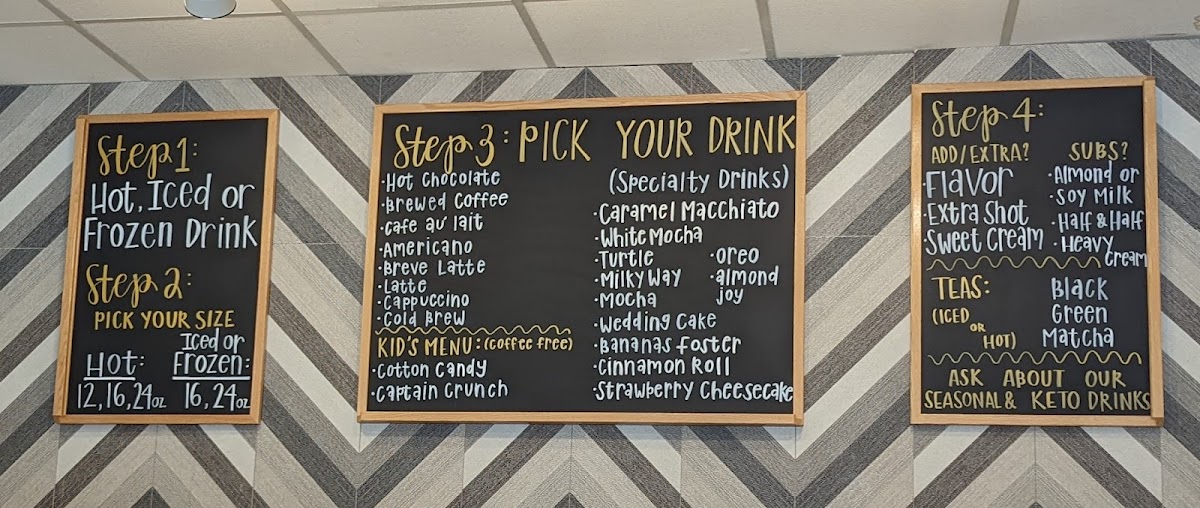 Step 1:
Hot, Iced or
Frozen Drink
Step 2:
PICK YOUR SIZE
Hot:
12, 16, 24oz
Iced or
Frozen:
16, 24oz
Step 3: PICK YOUR DRINK
·Hot Chocolate
·Brewed Coffee
·Cafe au' lait
·Americano
·Breve Latte
·Latte
·Cappuccino
·Cold Brew
KID'S MENU: (coffee free)
·Cotton Candy
·Captain Crunch
(Specialty Drinks)
·Caramel Macchiato
·White Mocha
·Turtle
·Milky Way
·Mocha
·Oreo
·almond
joy
·Wedding Cake
·Bananas Foster
·Cinnamon Roll
·Strawberry Cheesecake
Step 4:
ADD/EXTRA?
·Flavor
·Extra Shot
·Sweet Cream
SUBS?
·Almond or
Soy Milk
·Half & Half
·Heavy
Cream
TEAS:
(ICED
OR
HOT)
Black
Green
Matcha
ASK ABOUT OUR
SEASONAL & KETO DRINKS